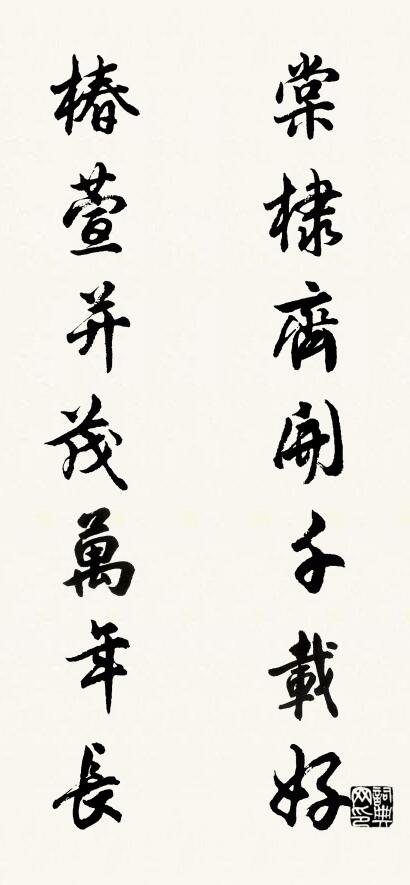 棠棣齊開千載好
椿萱并茂萬年長
詞典網印